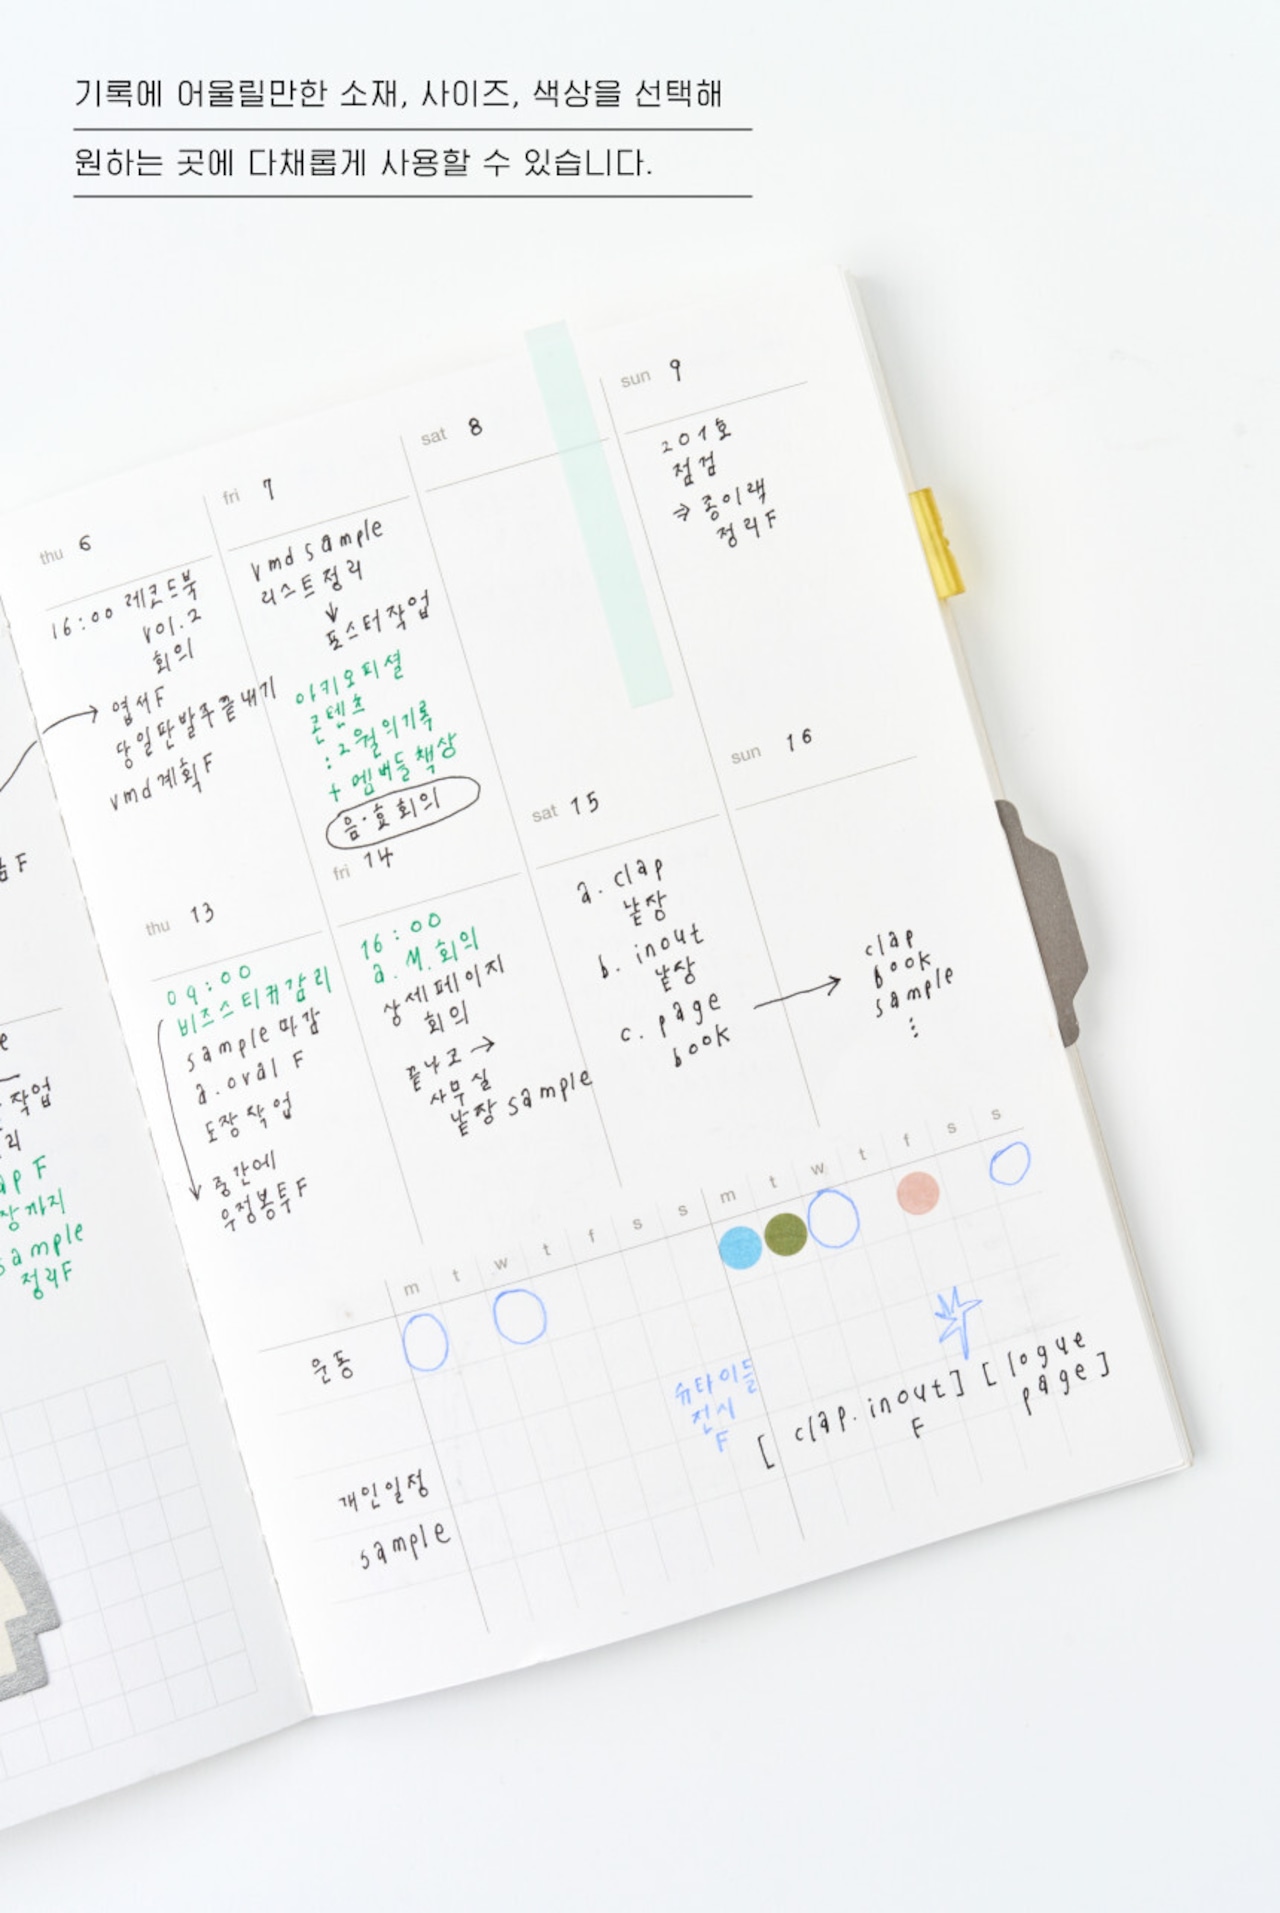 기록에 어울릴만한 소재, 사이즈, 색상을 선택해
원하는 곳에 다채롭게 사용할 수 있습니다.
thu 6
16:00 레코드북
vol.2
회의
엽서F
당일판발주끝내기
vmd계획F
fri 7
vmd sample
리스트정리
↓
포스터작업
아키오피셜
콘텐츠
:2월의기록
+ 멤버들책상
음·효회의
sat 8
sun 9
201호
점검
⇒ 종이랙
정리F
thu 13
09:00
비즈스티커감리
sample 마감
a.oval F
도장작업
중간에
우정봉투F
fri 14
16:00
a.M.회의
상세페이지
회의
끝나고 →
사무실
낱장 sample
sat 15
a. clap
낱장
b. inout
낱장
c. page
book
sun 16
clap
book
sample
⋮
F
e
작업
리
ap F
장까지
sample
정리F
m t w t f s s m t w t f s s
운동
슈타이들
전시
F
[ clap. inout] [logue
F
page ]
개인일정
sample